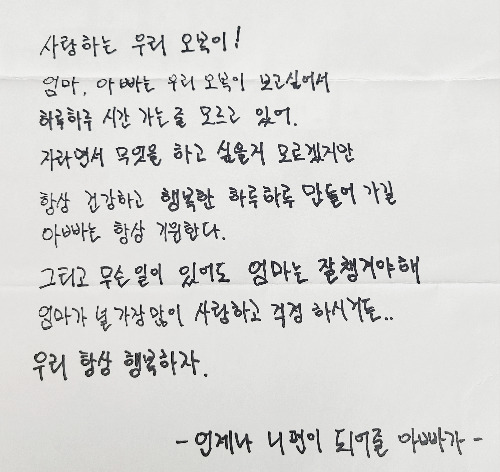 사랑하는 우리 오복이!
엄마, 아빠는 우리 오복이 보고싶어서
하루하루 시간 가는줄 모르고 있어.
자라면서 무엇을 하고 싶을지 모르겠지만
항상 건강하고 행복한 하루하루 만들어 가길
아빠는 항상 기원한다.
그리고 무슨 일이 있어도 엄마는 잘챙겨야해
엄마가 널 가장 많이 사랑하고 걱정 하시거든..
우리 항상 행복하자.
- 언제나 니편이 되어줄 아빠가 -